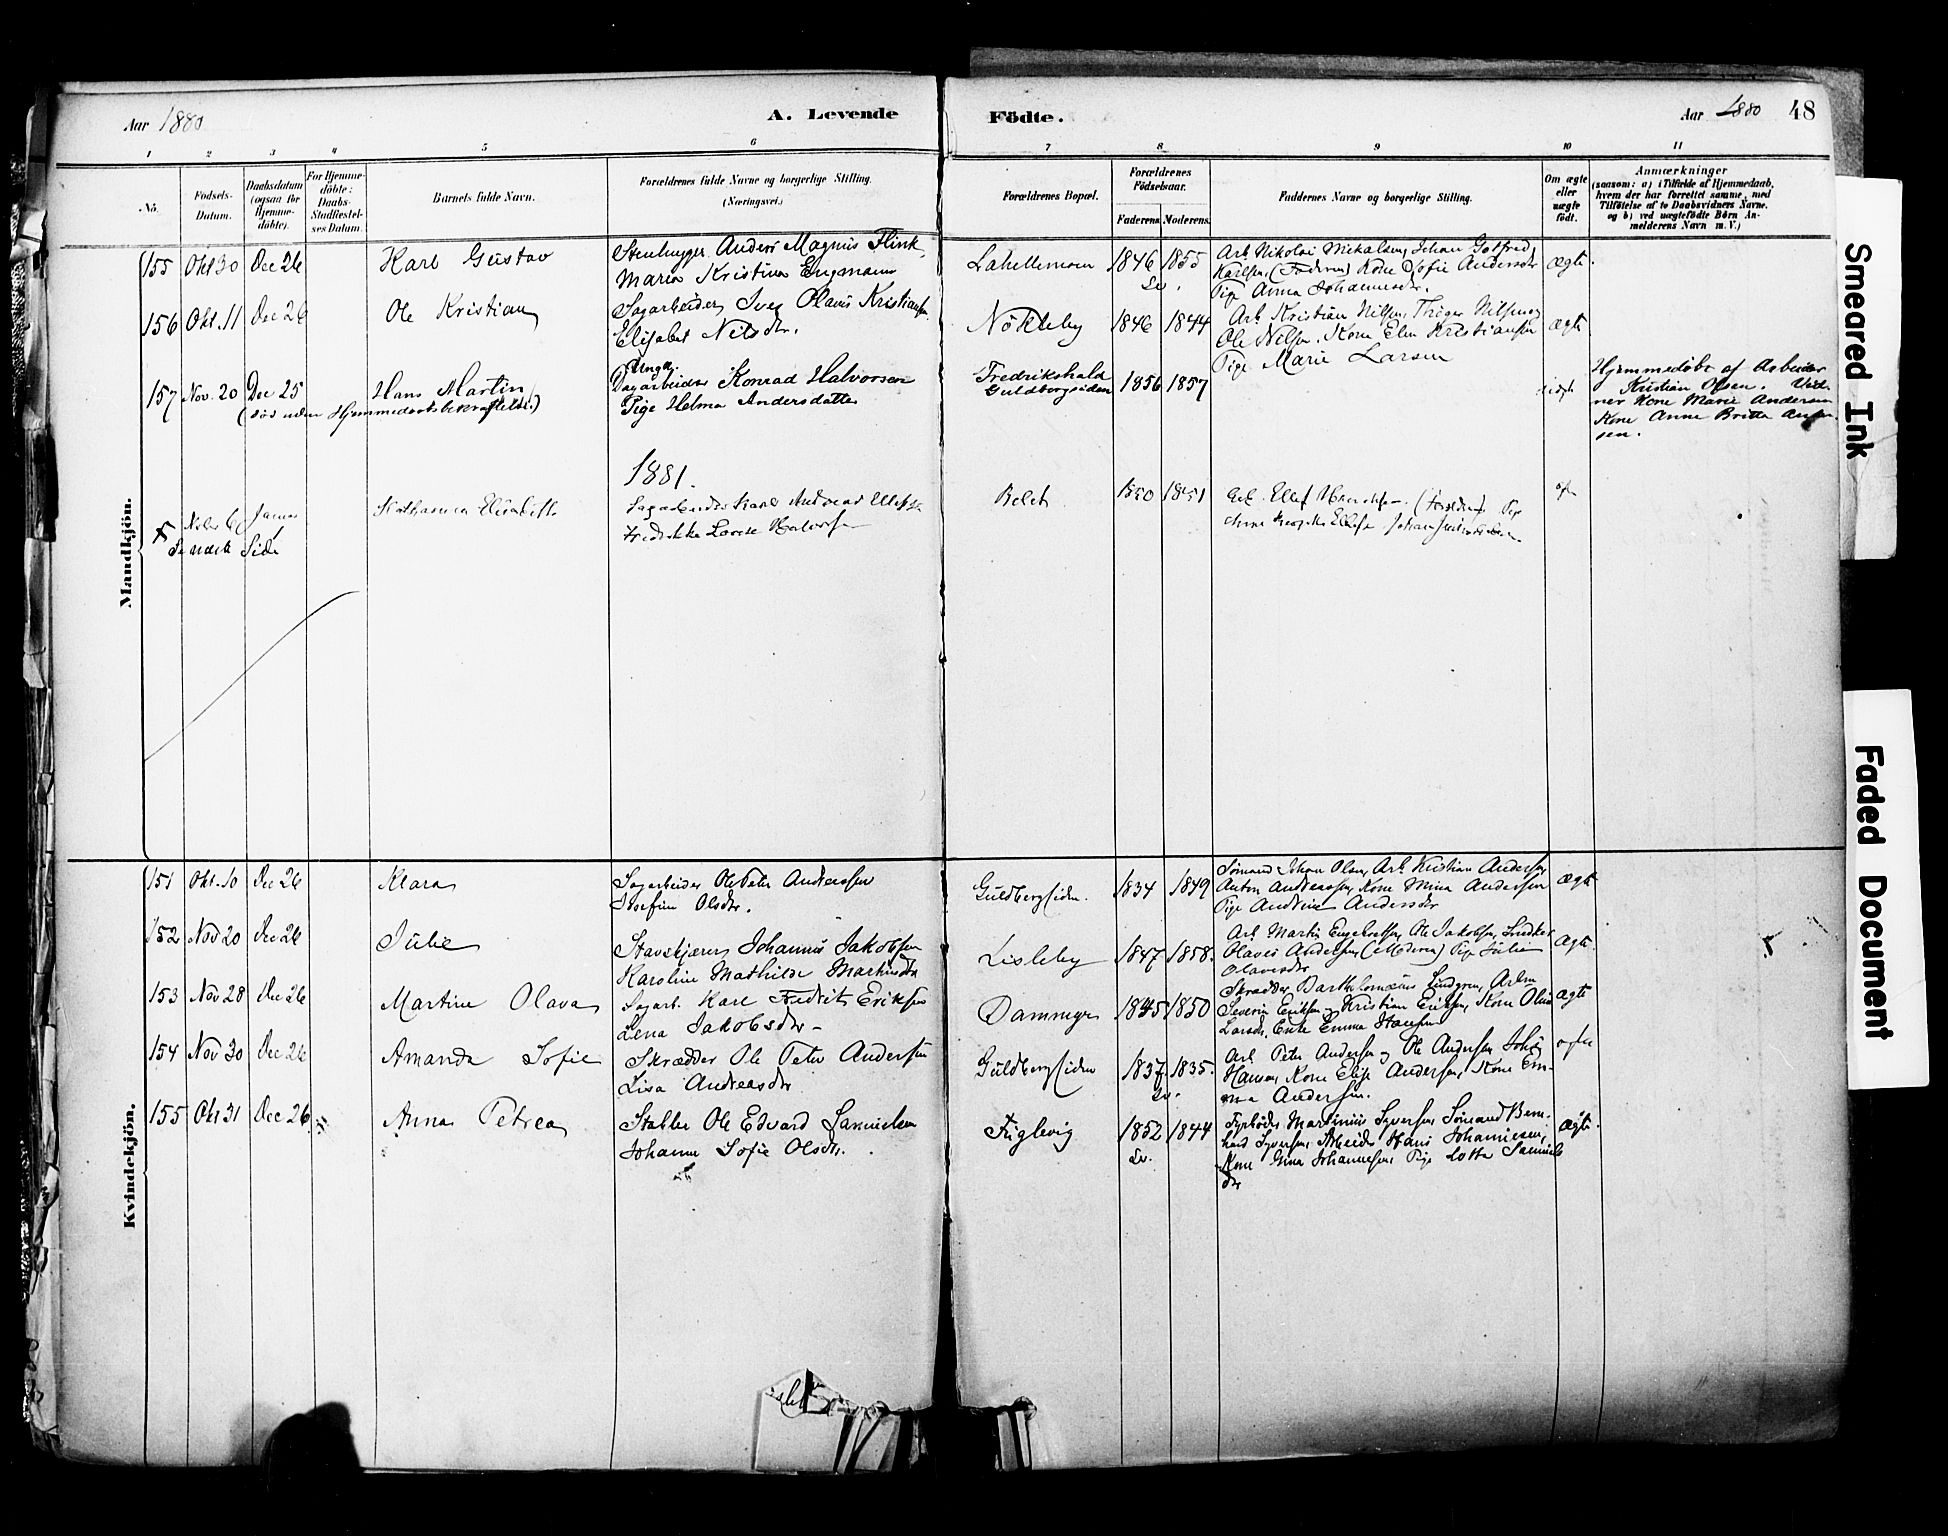 Aar 1880
A. Levende
Födte.
Aar 1880
48
1 2 3 4 5 6 7 8 9 10 11
No.
Födsels-
Datum.
Daabsdatum
(ogsaa for
Hjemme-
döbte).
For Hjemme-
döbte:
Daabs-
Stadfæstel-
ses Datum.
Barnets fulde Navn.
Forældrenes fulde Navne og borgerlige Stilling.
(Næringsvei.)
Forældrenes Bopæl.
Forældrenes
Födselsaar.
Faderens Moderens.
Faddernes Navne og borgerlige Stilling.
Om ægte
eller
uægte
födt.
Anmærkninger
(saasom: a) i Tilfælde af Hjemmedaab,
hvem der har forrettet samme, med
Tilföielse af to Daabsvidners Navne,
og b) ved uægtefödte Börn An-
melderens Navn m. V.)
Mandkjön.
155 Okt 30 Dec 26
Karl Gustav
Stenhugger Anders Magnus Flink
Maria Kristina Engmann
1846 1855
Sv.
Arb. Nikolai Mikalsen, Johan Gotfred
Karlsen, (Faderen) Kone Sofie Andersdr
Pige Anna Johannesdr.
ægte.
156 Okt. 11 Dec 26
Ole Kristian
Sagarbeider Iver Olaus Kristiansen
Elisabet Nilsdr.
Nökleby
1846 1844
Arb. Kristian Nilsen, Thøger Nilsen og
Ole Nilsen, Kone Elen Kristiansen
Pige Marie Larsen
ægte
157 Nov. 20 Dec 25
Hans Martin
(död uden Hjemmedaabsbekræftelse.)
Ungk.
Dagarbeider Konrad Halvorsen
Pige Helma Andersdatter
Fredrikshald
Guldbergsiden
1856 1857
uægte
Hjemmedøbt af Arbeider
Kristian Olsen. Vid-
ner Kone Marie Andersen
Kone Anne Britta
sen.
1881.
6 Januar
Se næste Side
Katharina Elisabeth
Sagarbeider Karl Andreas Ellefsen
Fredrikke Lovise Halvorsen
1850 1851
Arb. Ellef (Forældrene) Pige
Kvindekjön.
151 Okt. 10 Dec 26
Klara
Sagarbeider Ole Peter Andreassen
Josefine Olsdr.
Guldbergsiden.
1834 1849
Sömand Johan Olsen, Arb. Kristian Andersen
Anton Andreassen, Kone Mina Andersen
Pige Andrine Andersdr
ægte
152 Nov 20 Dec 26
Julie
Stavskjærer Johannes Jakobsen
Karoline Mathilde Martinsdr
Lisleby
1847 1858.
Arb. Martin Engebretsen, Ole Jakobsen, Snedker
Olaves Andersen, (Moderen) Pige Julie
Olavesdr
ægte.
153 Nov 28 Dec 26
Martine Olava
Sagarb. Karl Fredrik Eriksen
Lena Jakobsdr
Dammyr
1845 1850
Skrædder Bartholomæus Lindgren, Arbm
Severin Eriksen, Kristian Eriksen, Kone Olia
Larsdr, Enke Emma Hansen
ægte
154 Nov 30 Dec 26
Amanda Sofie
Skrædder Ole Peter Andersen
Lisa Andreasdr
Guldbergsiden
1837 1835.
Sv.
Arb. Peter Andersen og Ole Andersen, Johs
Hansen, Kone Elise Andersen, Kone Em-
ma Andersen.
ægte
155 Okt 31 Dec 26
Anna Petrea
Stabler Ole Edvard Samuelsen
Johanne Sofie Olsdr.
Fuglevig
1852 1844
Sv.
Fyrböder Martinius Syversen, Sömand Bern-
hard Syversen, Arbeider Hans Johannesen,
Kone Gina Johannesen, Pige Lotta Samuels
dr
ægte.
Smeared Ink
Faded Document